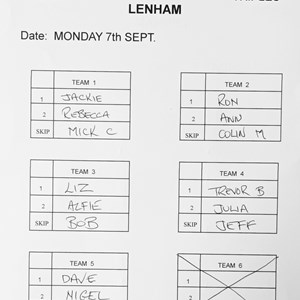 LENHAM
Date: MONDAY 7th SEPT.
TEAM 1
1 JACKIE
2 REBECCA
SKIP MICK C
TEAM 2
1 RON
2 ANN
SKIP COLIN M
TEAM 3
1 LIZ
2 ALFIE
SKIP BOB
TEAM 4
1 TREVOR B
2 JULIA
SKIP JEFF
TEAM 5
1 DAVE
2 NIGEL
TEAM 6
1
2